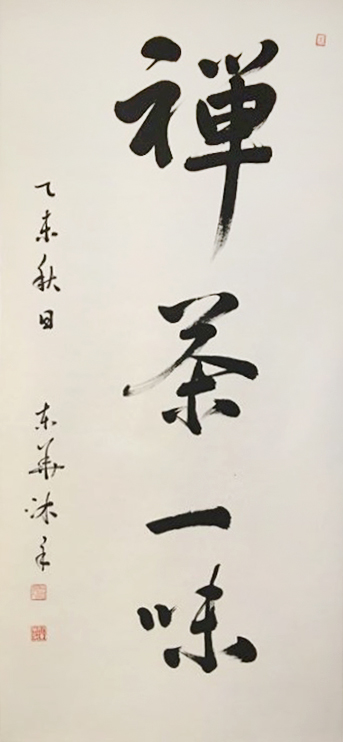 禅茶一味
乙未秋日 东华沐手